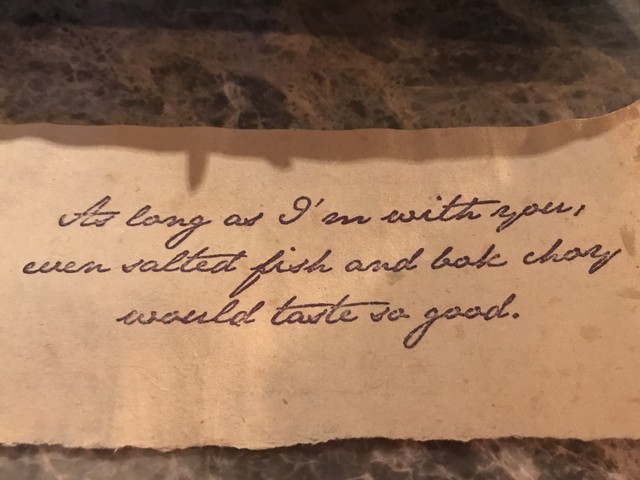 As long as I'm with you,
even salted fish and bok choy
would taste so good.